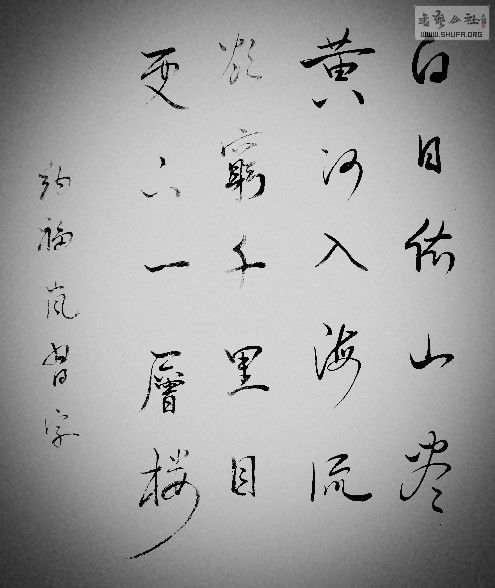 白日依山尽
黄河入海流
欲窮千里目
更上一層楼
福岚習字
書藝公社
WWW.SHUFA.ORG